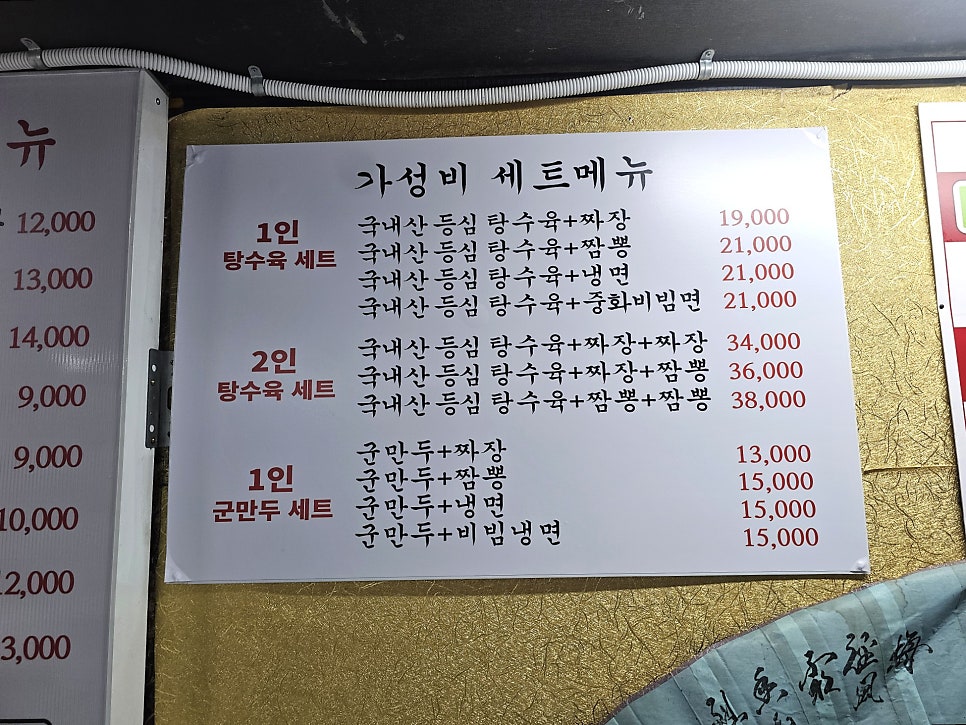 뉴
12,000
13,000
14,000
9,000
9,000
10,000
12,000
3,000
가성비 세트메뉴
1인
탕수육 세트
국내산 등심 탕수육+짜장 19,000
국내산 등심 탕수육+짬뽕 21,000
국내산 등심 탕수육+냉면 21,000
국내산 등심 탕수육+중화비빔면 21,000
2인
탕수육 세트
국내산 등심 탕수육+짜장+짜장 34,000
국내산 등심 탕수육+짜장+짬뽕 36,000
국내산 등심 탕수육+짬뽕+짬뽕 38,000
1인
군만두 세트
군만두+짜장 13,000
군만두+짬뽕 15,000
군만두+냉면 15,000
군만두+비빔냉면 15,000